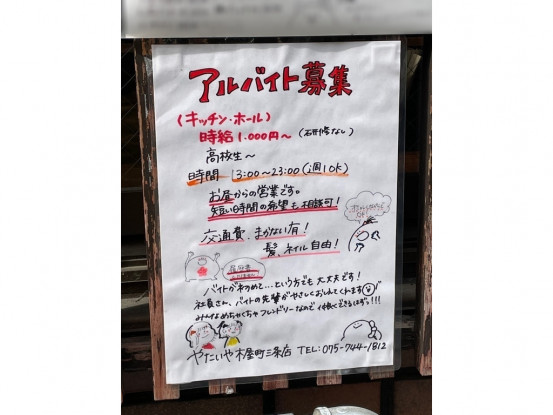 アルバイト募集
(キッチン・ホール)
時給 1.000円~ (研修なし)
高校生~
時間 13:00~23:00 (週1OK)
お昼からの営業です。
短い時間の希望も相談可!
交通費、まかない有!
髪、ネイル自由!
バイトが初めて…という方でも大丈夫です!
社員さん、バイトの先輩がやさしくおしえてくれます
みんなめちゃくちゃフレンドリーなので仲良くできるはずっ!!!
やたいや 木屋町三条店 TEL: 075-744-1812